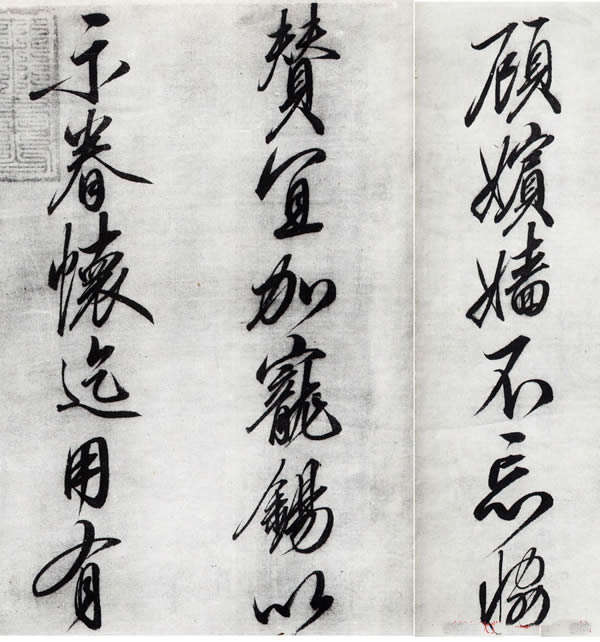 顧嬪嬙不忘協
贊宜加寵錫以
示眷懷迄用有